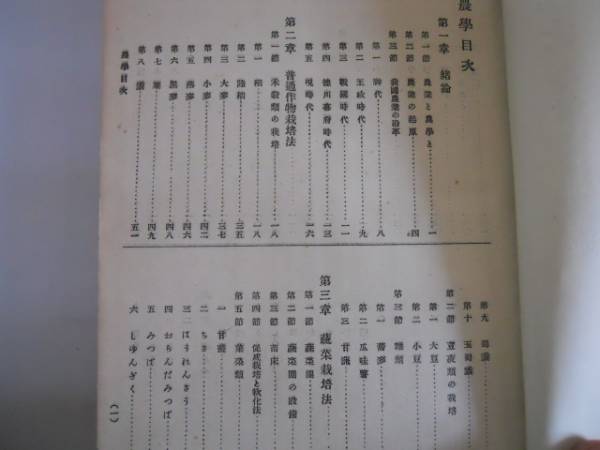 農學目次
第一章 緒論
第一節 農業と農學と……一
第二節 農業の起原……四
第三節 我國農業の沿革
第一 神代……八
第二 王政時代……九
第三 戰國時代……一一
第四 德川幕府時代……一三
第五 現時代……一六
第二章 普通作物栽培法
第一節 米穀類の栽培……一八
第一 稻……一八
第二 陸稻……三五
第三 大麥……三七
第四 小麥……四二
第五 燕麥……四六
第六 黑麥……四八
第七 
第八 
四九
五一
農學目次
第九 蜀黍
第十 玉蜀黍
第二節 荳菽類の栽培
第一 大豆
第二 小豆
第三節 雜類
第一 蕎麥
第二 瓜哇薯
第三 甘藷
第三章 蔬菜栽培法
第一節 蔬菜園
第二節 蔬菜園の設備
第三節 苗床
第四節 促成栽培と軟化法
第五節 葉菜類
一 甘藍
二 ちさ
三 はうれんさう
四 おらんだみつば
五 みつば
六 しゆんぎく
(一)